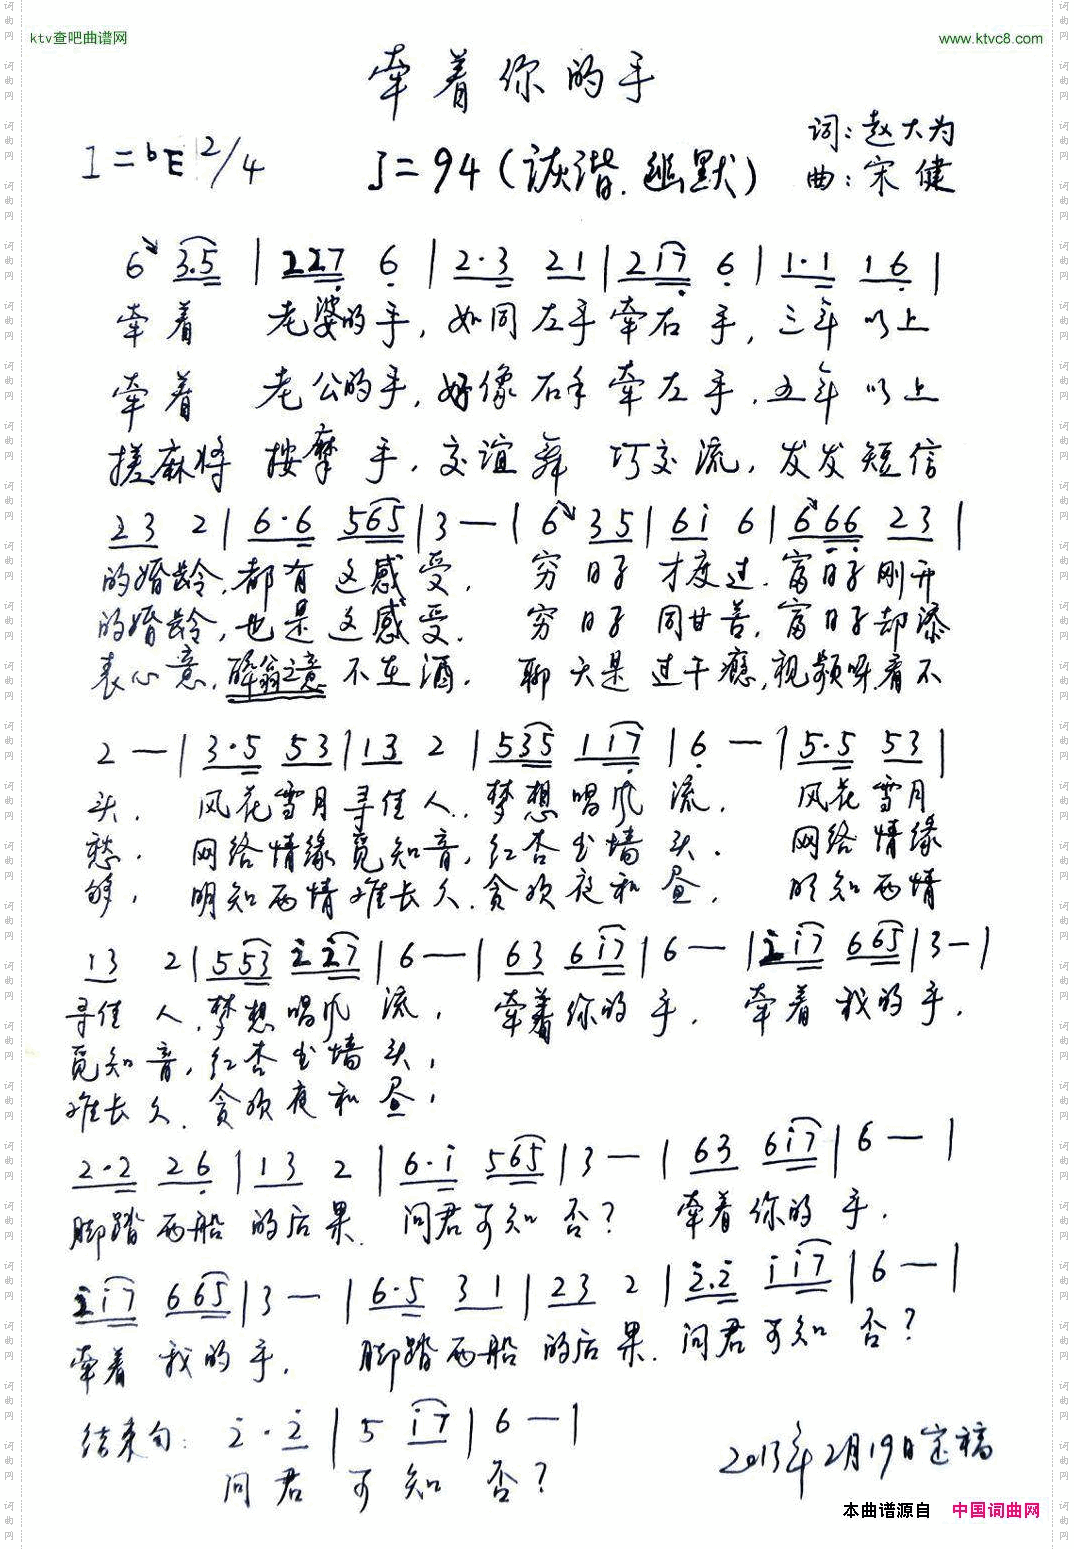 ktv查吧曲谱网
www.ktvc8.com
牵着你的手
词:赵大为
1=bE 2/4 ♩=94(诙谐.幽默) 曲:宋健
6 3.5 | 227 6 | 2·3 21 | 2i7 6 | 1·1 16 |
牵着 老婆的手,如同左手牵右手,三年以上
牵着 老公的手,好像右手牵左手,五年以上
搓麻将 按摩手,交谊舞 巧交流,发发短信
23 2 | 6·6 565 | 3 — | 6 35 | 6i 6 | 666 23 |
的婚龄,都有这感受. 穷日子才度过.富日子刚开
的婚龄,也是这感受. 穷日子同甘苦,富日子却添
表心意,醉翁之意不在酒. 聊天是过干瘾,视频呀看不
2 — | 3·5 53 | 13 2 | 535 1i7 | 6 — | 5·5 53 |
头. 风花雪月寻佳人,梦想唱风流. 风花雪月
愁. 网络情缘觅知音,红杏出墙头. 网络情缘
够, 明知两情难长久.贪欢夜和昼. 明知两情
13 2 | 553 i i7 | 6 — | 63 6i7 | 6 — | ii7 665 | 3 — |
寻佳人,梦想唱风流, 牵着你的手. 牵着我的手.
觅知音,红杏出墙头,
难长久.贪欢夜和昼,
2·2 26 | 13 2 | 6·i 565 | 3 — | 63 6i7 | 6 — |
脚踏两船的后果.问君可知否? 牵着你的手.
ii7 665 | 3 — | 6·5 31 | 23 2 | 2·2 ii7 | 6 — |
牵着我的手. 脚踏两船的后果.问君可知否?
结束句: 2·2 | 5 i7 | 6 — |
问君可知否?
2013年2月19日定稿
本曲谱源自 中国词曲网
词曲网